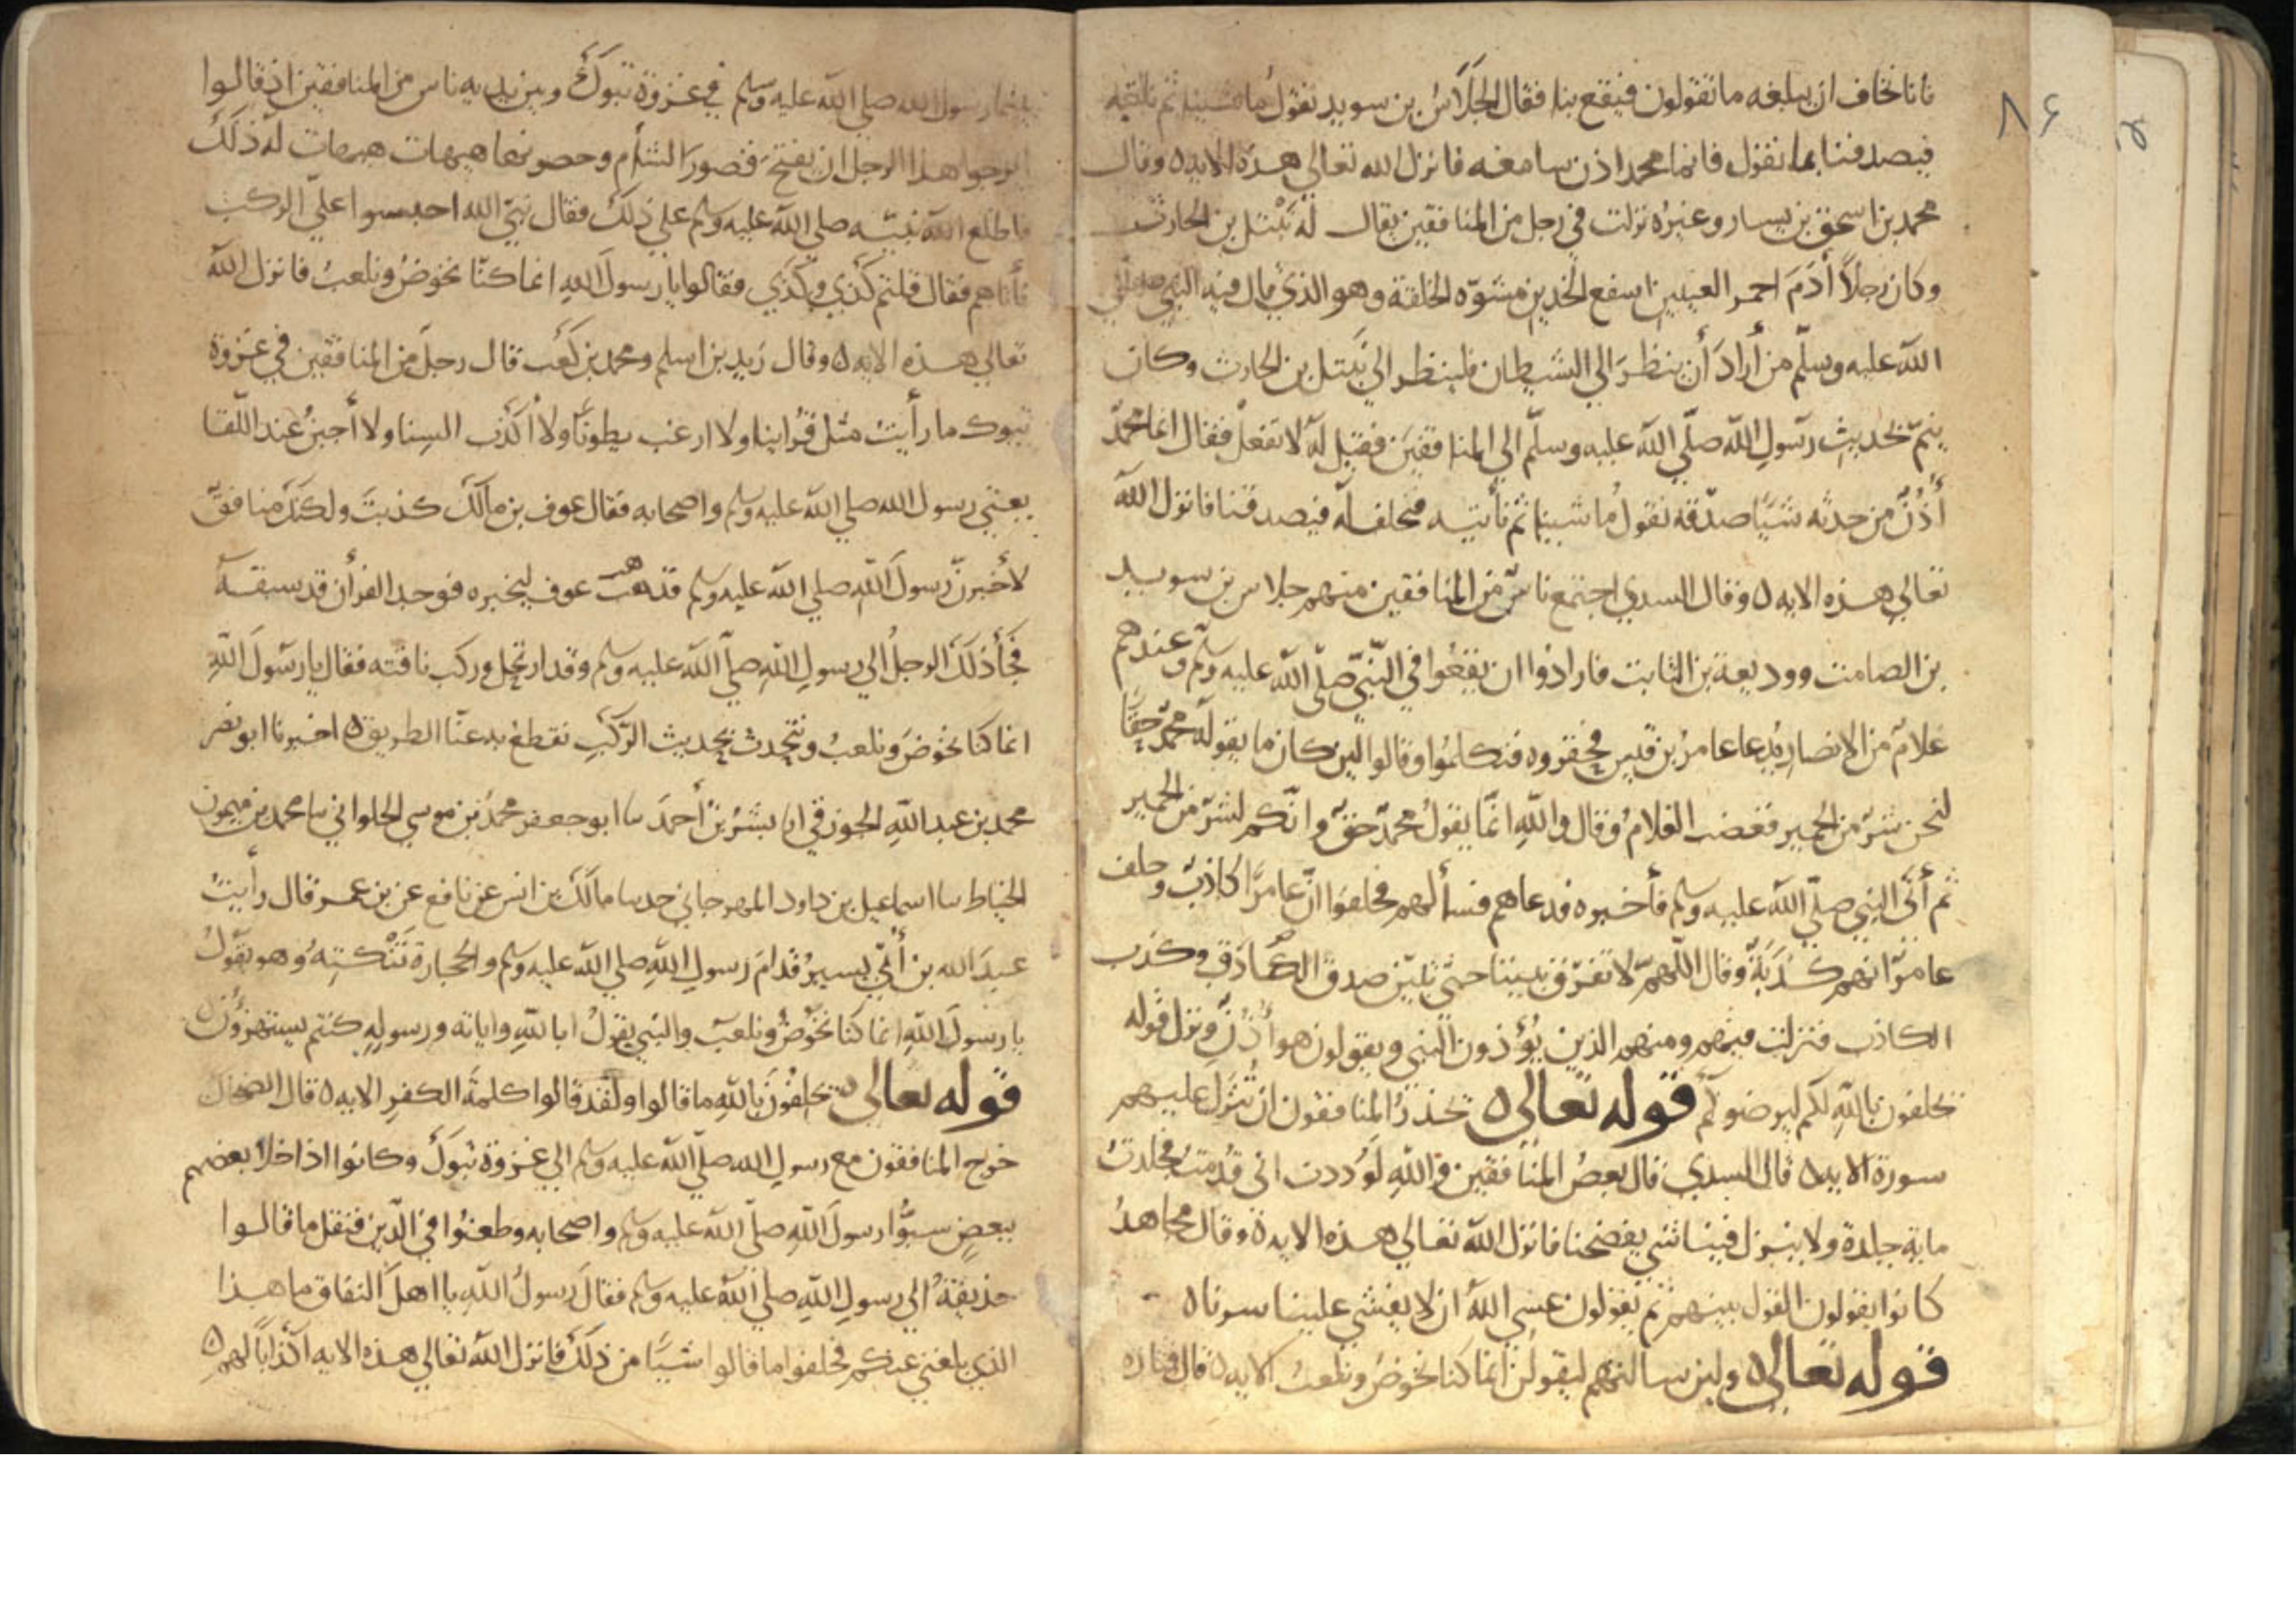 نانا نخاف ان يبلغه ما تقولون فيقع بنا فقال الجَلَاسُ بن سويد نقولُ ما شينا ثم ناتيه
فيصدقنا بما نقول فانما محمد اذن سامعه فانزل الله تعالي هذه الايه ٥ وقال
محمد بن اسحق بن يسار وغيره نزلت في رجل من المنافقين يقال له نَبْتل بن الحارث
وكان رجلاً أَدَمَ احمر العينين اسفع الخدين مشوّه الخلقة وهو الذي قال فيه النبي صلي
الله عليه وسلّم من أرادَ أن ينظرَ الي الشيطان فلينظر الي نَبتل بن الحارث وكان
ينمّ بحديثِ رسولِ اللّه صلّي اللّه عليه وسلّم الي المنافقينَ فقيل له لا تفعل فقال انما محمّدٌ
أُذُنٌ من حدثه شيًا صدّقه نقولُ ما شينا ثم نأتيه فنحلف له فيصدقنا فانزل اللّه
تعالي هذه الايه ٥ وقال السدي اجتمع ناسٌ من المنافقين منهم جلاس بن سويد
بن الصامت ووديعة بن الثابت فارادوا ان يقعُوا في النّبيّ صلّي اللّه عليه وسلّم وعندهم
غلامٌ من الانصار يُدعا عامرُ بن قيس فحقروه فتكلمُوا وقالوا لين كان ما يقوله محمّد حقًا
لنحن شرٌ من الحمير فغضب الغلامُ وقال واللّهِ انّما يقولُ محمّدٌ حقٌ وانّكم لشرٌ من الحمير
ثم أتى النبي صلّي اللّه عليه وسلم فأخبره فدعاهم فسألهم فحلفوا انّ عامرًا كاذبٌ وحلف
عامرٌ انهم كَذَبَةٌ وقال اللّهمّ لا تفرّق بيننا حتّي تبيّن صدق الصّادق وكذب
الكاذب فنزلت فيهم ومنهم الذين يُؤذون النبي ويقولون هو أُذُنٌ ونزل قوله
يحلفون باللّهِ لكم ليرضوكم قوله تعالى ٥ يحذرُ المنافقون ان تُنَزَّل عليهم
سورة الايه ٥ قال السدي قال بعضُ المنافقين واللّهِ لَوَددت اني قُدمتُ فجلدتُ
ماية جلدة ولا ينزل فينا شي يفضحنا فانزل اللّه تعالي هذه الاية ٥ وقال مجاهدُ
كانوا يقولون القول بينهم ثم يقولون عسي اللّهُ ان لا يفشي علينا سرنا ٥
قوله تعالى ٥ ولين سالتهم ليقولُنّ انما كنا نخوضُ ونلعبُ الايه ٥ قال قتاده
٨٤
بينما رسول الله صلي اللّه عليه وسلم في غزوة تبوكَ وبين يديه ناس من المنافقين اذ قالوا
ايرجوا هذا الرجل ان يفتحَ قصورَ الشأم وحصونها هيهات هيهات له ذلك
فاطلع اللّه نبيّه صلي اللّه عليه وسلم علي ذلكَ فقال نبيّ الله احبسوا علىّ الركب
فأتاهم فقال قلتم كَذي وكَذي فقالوا يا رسولَ اللهِ انما كنّا نخوضُ ونلعبُ فانزل اللّه
تعالي هذه الايه ٥ وقال زيد بن اسلم ومحمد بن كَعب قال رجل من المنافقين في غزوة
تبوك ما رأيتُ مثل قُرّاينا ولا ارغب بطونًا ولا أكذب السِنا ولا أجبنُ عند اللّقا
يعني رسول الله صلي اللّه عليه وسلم واصحابه فقال عوف بن مالكٌ كذبتَ ولكنّكَ منافقٌ
لأخبرنّ رسولَ اللّهِ صلي اللّه عليه وسلم فذهب عوف ليخبره فوجد القرأن قد سبقه
فجَأَ ذلكَ الرجلُ الي رسولِ اللّهِ صلّي اللّه عليه وسلم وقد ارتحل وركب ناقته فقال يا رسولَ اللّهِ
انما كنا نخوضَ ونلعبُ ونتحدث بحديث الرّكَبِ نقطعُ به عنّا الطريق ٥ اخبرنا ابو نصر
محمد بن عبد اللّهِ الجوزقي انا بشرُ بن أحمدَ سا ابو جعفر محمدُ بن موسي الحلواني سا محمد بن ميمون
الخياط سا اسماعيل بن داود المهرجاني حدسا مالكُ بن انس عن نافع عن بن عمر قال رأيتُ
عبدَ الله بن أُبّي يسيرُ قدامَ رسولِ اللّهِ صلي اللّه عليه وسلم والحجارة تَنْكبتهُ وهو يقولُ
يا رسولَ اللّهِ انما كنا نخوضُ ونلعبُ والنبي يقولُ ابا للّهِ واياته ورسولِهِ كنتم يستهزؤُن ٥
قوله تعالى ٥ يحلِفُونَ باللّهِ ما قالوا ولقد قالوا كلمةَ الكفرِ الايه ٥ قال الضحاك
خرج المنافقون مع رسولِ الله صلّي اللّه عليه وسلم الي غزوة تبوكَ وكانوا اذا خلا بعضهم
ببعضٍ سبُّوا رسولَ اللّهِ صلّي اللّه عليه وسلم واصحابه وطعنُوا في الدّين فنقل ما قالوا
حذيفةُ الي رسولِ اللّهِ صلي اللّه عليه وسلم فقال رسولُ اللّهِ يا اهلَ النفاق ما هذا
الذي بلغني عنكم فحلفوا ما قالوا شيًا من ذلكَ فانزل اللّهُ تعالي هذه الايه اكذابًا لهم ٥